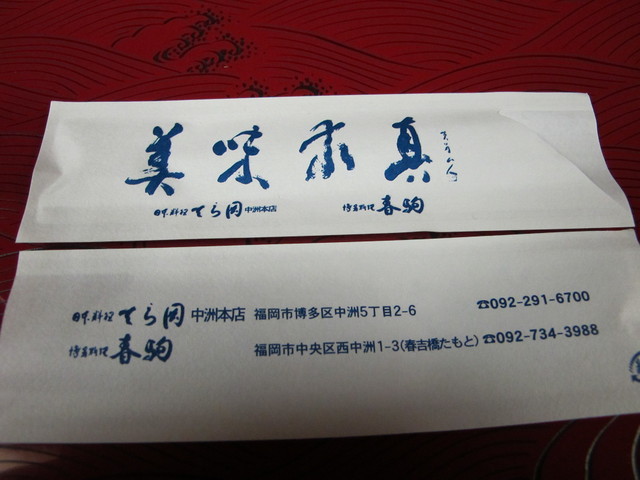 美味求真
日本料理 てら岡 中洲本店
博多料理 春駒
日本料理 てら岡 中洲本店 福岡市博多区中洲5丁目2-6 ☎092-291-6700
博多料理 春駒 福岡市中央区西中洲1-3(春吉橋たもと) ☎092-734-3988